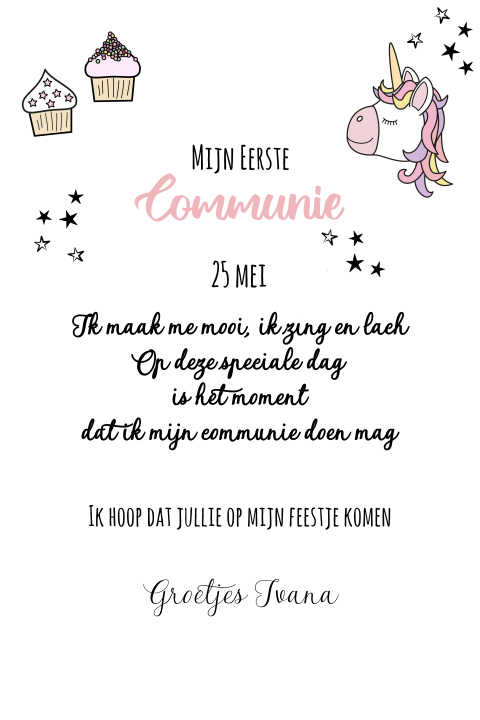 Mijn Eerste
Communie
25 mei
Ik maak me mooi, ik zing en lach
Op deze speciale dag
is het moment
dat ik mijn communie doen mag
Ik hoop dat jullie op mijn feestje komen
Groetjes Ivana